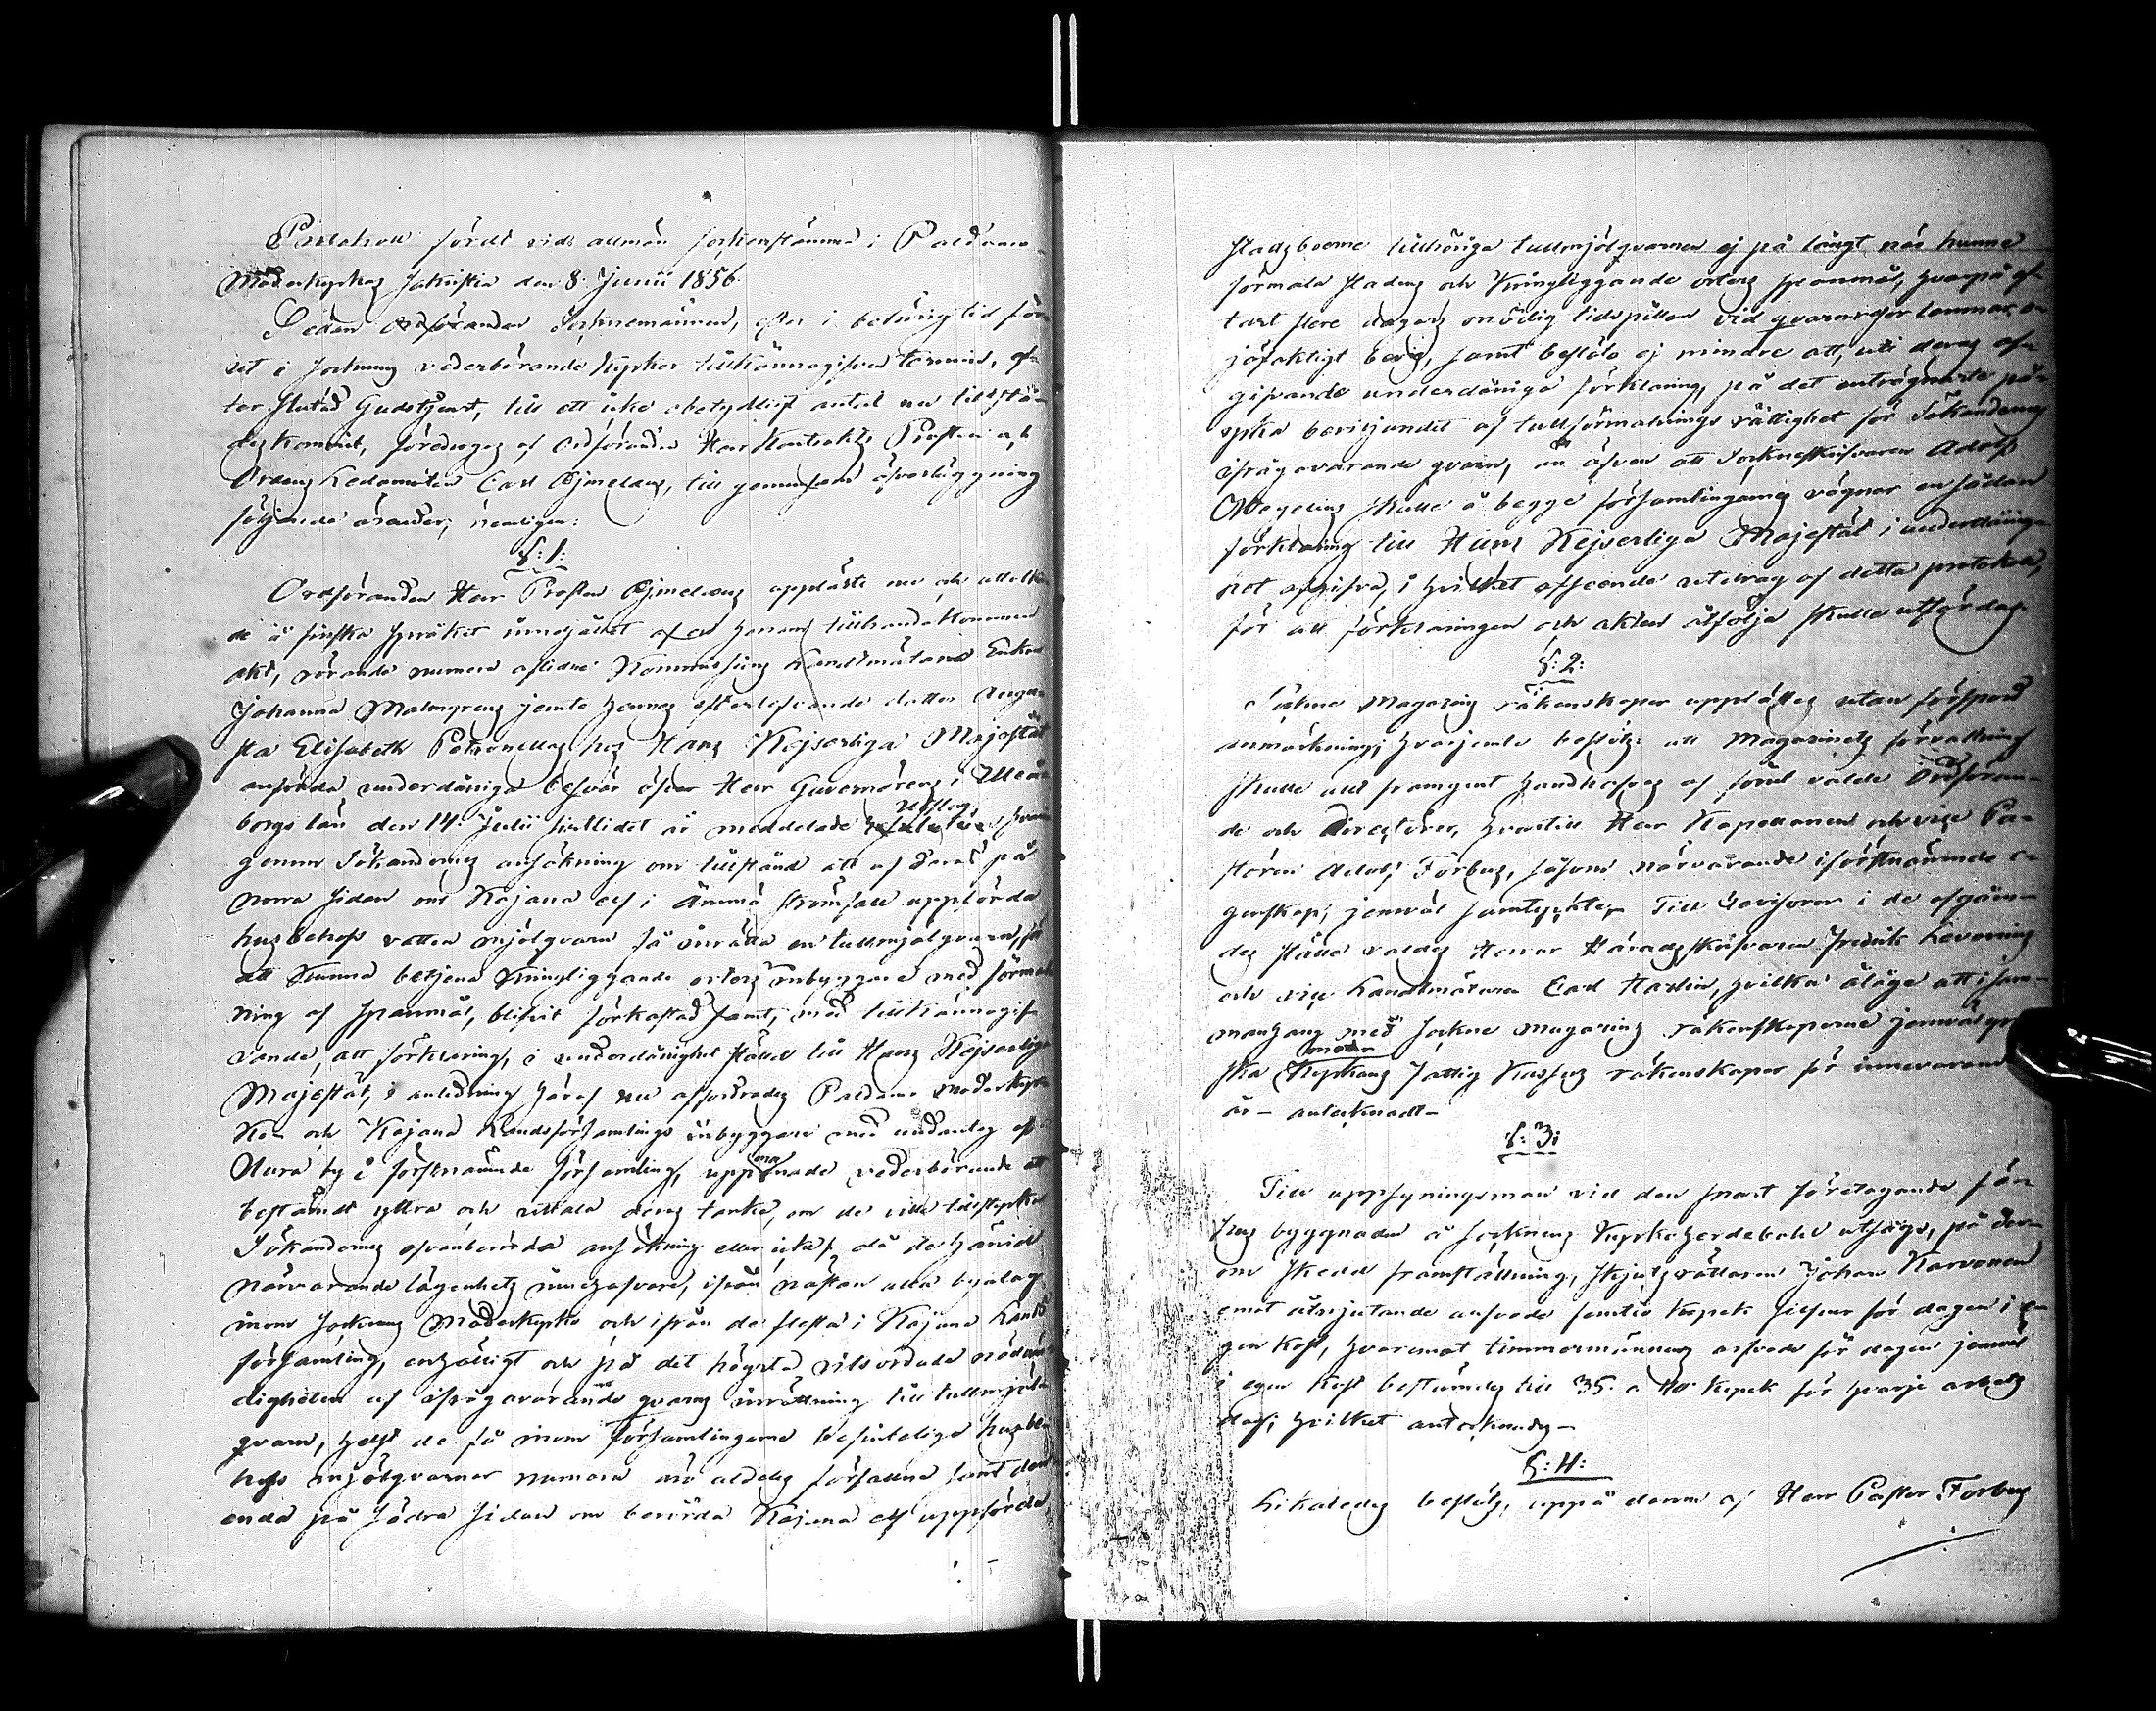 Protokoll fördt vid allmän sockenstämma i Paldamo
Moderkyrkas Sakristia den 8 Junii 1856.
Sedan Ordföranden Socknemännen, efter i behörig tid för
ut i socknens vederbörande kyrkor tillkännagifven termin, ef-
ter slutad Gudstjenst, till ett icke obetydligt antal nu tillstä-
des kommit, föredrogs af Ordföranden Herr Kontrakts Prosten och
Ordens Ledamoten Carl Ajmelæus, till gemensam öfverläggning
följande ärender, nemligen:
§: 1:
Ordföranden Herr Prosten Ajmelæus uppläste nu och uttolka-
de å finska språket innehållet af en honom tillhandakommen
akt, rörande numera aflidne Kommissions Landtmätaren Enkan
Johanna Malmgrens jemte hennes efterlefvande dotter Augu-
sta Elisabeth Petronellas hos Hans Kejserliga Majestät
anförda underdåniga besvär öfver Herr Guvernörens i Uleå-
borgs län den 14 Julii sistlidet år meddelade Utslag, hvari-
genom Sökandernes ansökning om tillstånd att af deras på
norra sidan om Kajana elf i Ämmä strömfall uppförda
husbehofs vatten mjölqvarn få inrätta en tullmjölqvarn, för
att kunna betjena kringliggande orters inbyggare med förmal-
ning af spannmål, blifvit förkastad samt, med tillkännagif-
vande, att förklaring, i underdånighet ställd till Hans Kejserliga
Majestät, i anledning häraf nu affordrades Paldamo Moderkyr-
ko- och Kajana Landsförsamlings inbyggare med undantag af
by i förstnämnde församling, uppmanade vederbörande att
bestämdt yttra och uttala deras tanke, om de ville tillstyrka
Sökandernes ofvanberörda ansökning eller icke, då de härvid
närvarande lägenhets innehafvare, ifrån nästan alla byalag
inom socknens Moderkyrko och ifrån de flesta i Kajana Lands
församling, enhälligt och på det högsta vitsordade nödvän-
digheten af ifrågavarande qvarns inrättning till tullmjöl-
qvarn, helst de få inom församlingarne befintliga husbe-
hofs mjölqvarnar numera äro alldeles förfallne samt den
enda på södra sidan om berörda Kajana elf uppförde,
stadsboerne tillhöriga tullmjölqvarnen ej på långt när kunna
förmala stadens och kringliggande orters spannmål, hvarpå of-
tast flere dagars onödig tidspillan vid qvarnresor lemnar o-
jäfaktigt bevis, samt beslöto ej mindre att, uti deras af-
gifvande underdåniga förklaring, på det enträgnaste på-
yrka beviljandet af tullförmalnings rättighet för Sökandernes
ifrågavarande qvarn, än äfven att Sockneskrifvaren Adolf
Wegelius skulle å begge församlingarnes vägnar en sådan
förklaring till Hans Kejserliga Majestät i underdånig-
het afgifva, i hvilket afseende utdrag af detta protokoll,
för att förklaringen och akten åtfölja skulle utfärdas.
§: 2:
Sockne Magasins räkenskaper upplästes utan försport
anmärkning; hvarjemte beslöts att Magasinets förvaltning
skulle allt framgent handhafvas af förut valde Ordföran-
de och Direktörer, hvartill Herr Kapellanen och vice Pa-
storn Adolf Forbus, såsom närvarande i förstnämnde e-
genskap, jemväl samtyckte. Till Revisorer i de afgåen-
des ställe valdes Herrar Häradsskrifvaren Fredrik Levonius
och vice Landtmätaren Carl Hardin, hvilka ålåge att i sam-
manhang med sockne magasins räkenskaperne jemväl gran-
ska moder Kyrkans fattig Kassas räkenskaper för innevarande
år – antecknadt –
§: 3:
Till uppsyningsman vid den snart företagande får-
hus byggnaden å socknens Kyrkoherdebohl utsågs, på der-
om skedd framställning, Skjutsrättaren Johan Karvonen
emot åtnjutande arfvode femtio kopek silfver för dagen i e-
gen kost, hvaremot timmermännens arfvode för dagen jemväl
i egen kost bestämdes till 35 a 40 kopek för hvarje arbets
dag, hvilket antecknades –
§: 4:
Likaledes beslöts, uppå derom af Herr Pastor Forbus